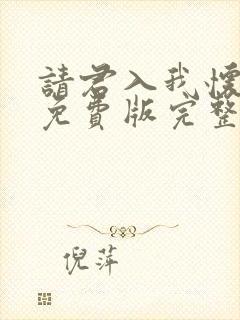 請君入我懷
免費版完整
倪萍